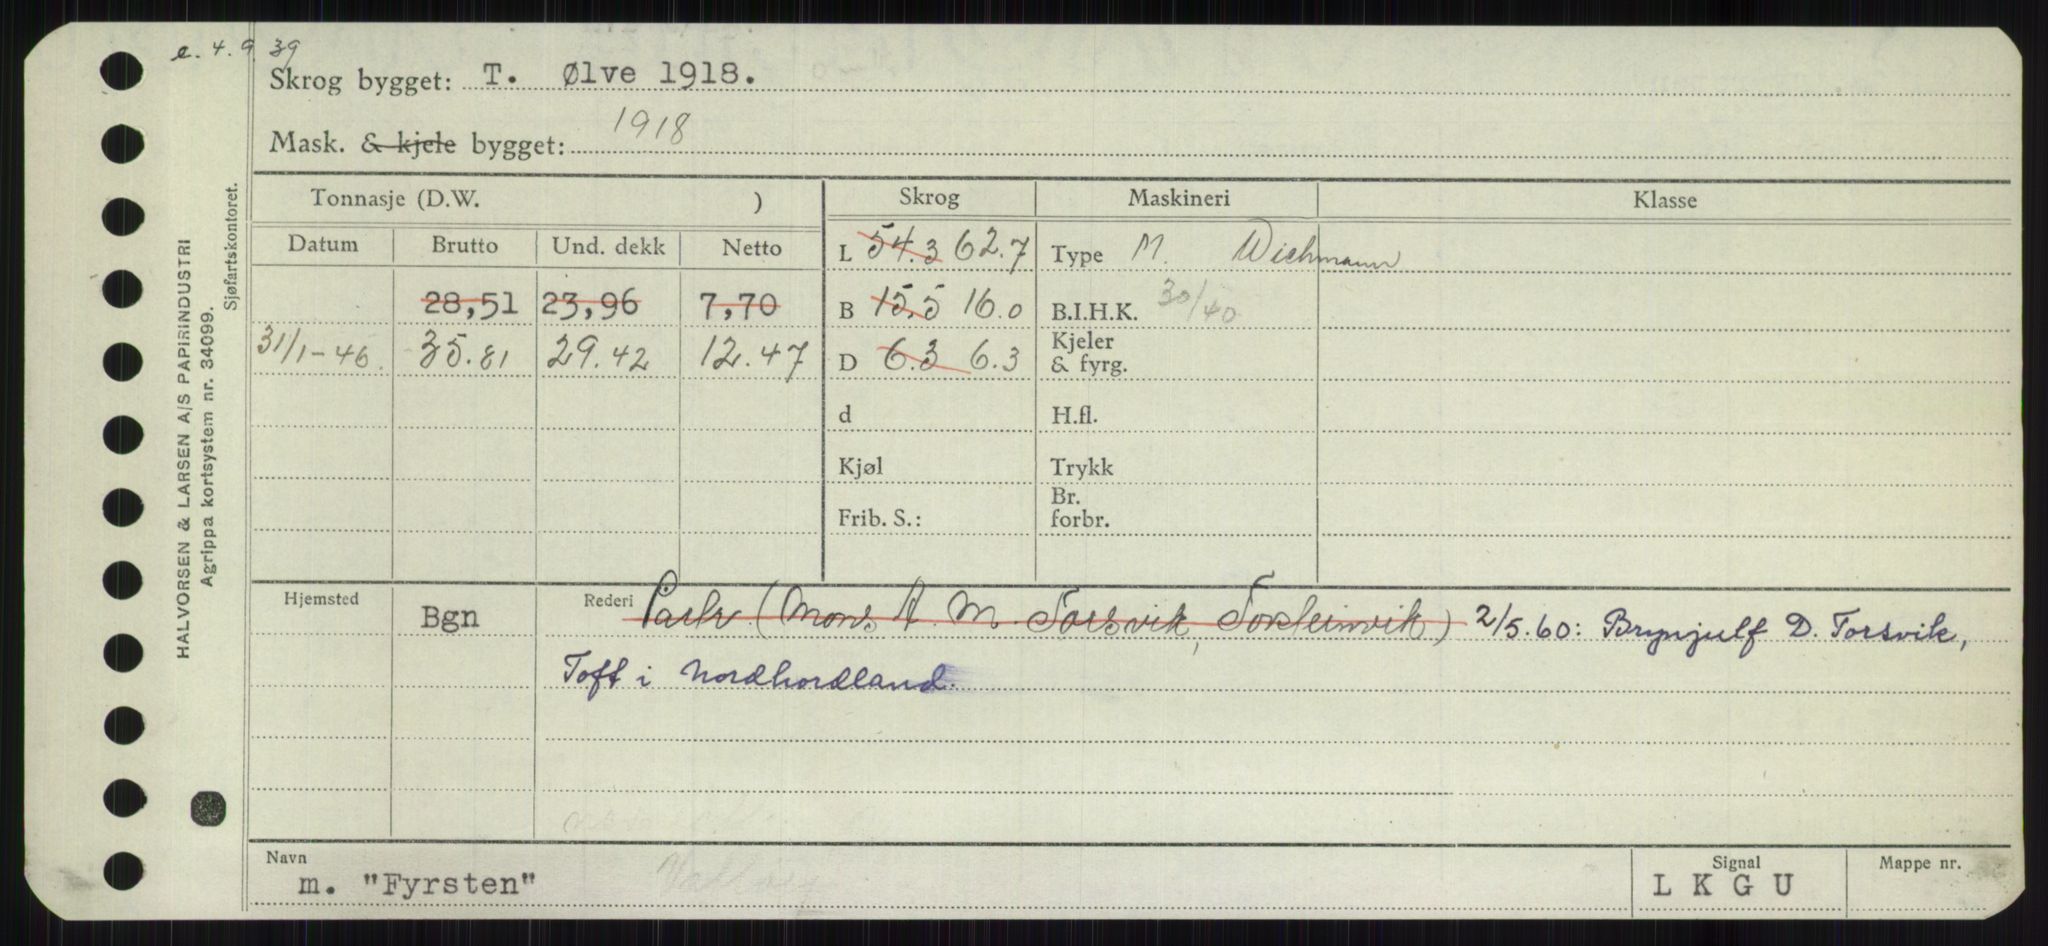 e. 4. 9. 39
Skrog bygget: T. Ølve 1918.
Mask. & kjele bygget: 1918
Tonnasje (D.W. ) Skrog Maskineri Klasse
Datum Brutto Und. dekk Netto L 54.3 62.7 Type M. Wichmann
28,51 23,96 7,70 B 15,5 16.0 B.I.H.K. 30/40
31/1-46. 35.81 29.42 12.47 D 6.3 6.3 Kjeler & fyrg.
d H.fl.
Kjøl Trykk
Frib. S.: Br. forbr.
Hjemsted Bgn Rederi Partr. (Mons A. M. Torsvik, ) 2/5.60: Brynjulf D. Torsvik,
Toft i Nordhordland.
Navn m. "Fyrsten" Signal L K G U Mappe nr.
HALVORSEN & LARSEN A/S PAPIRINDUSTRI
Agrippa kortsystem nr. 34099.
Sjøfartskontoret.